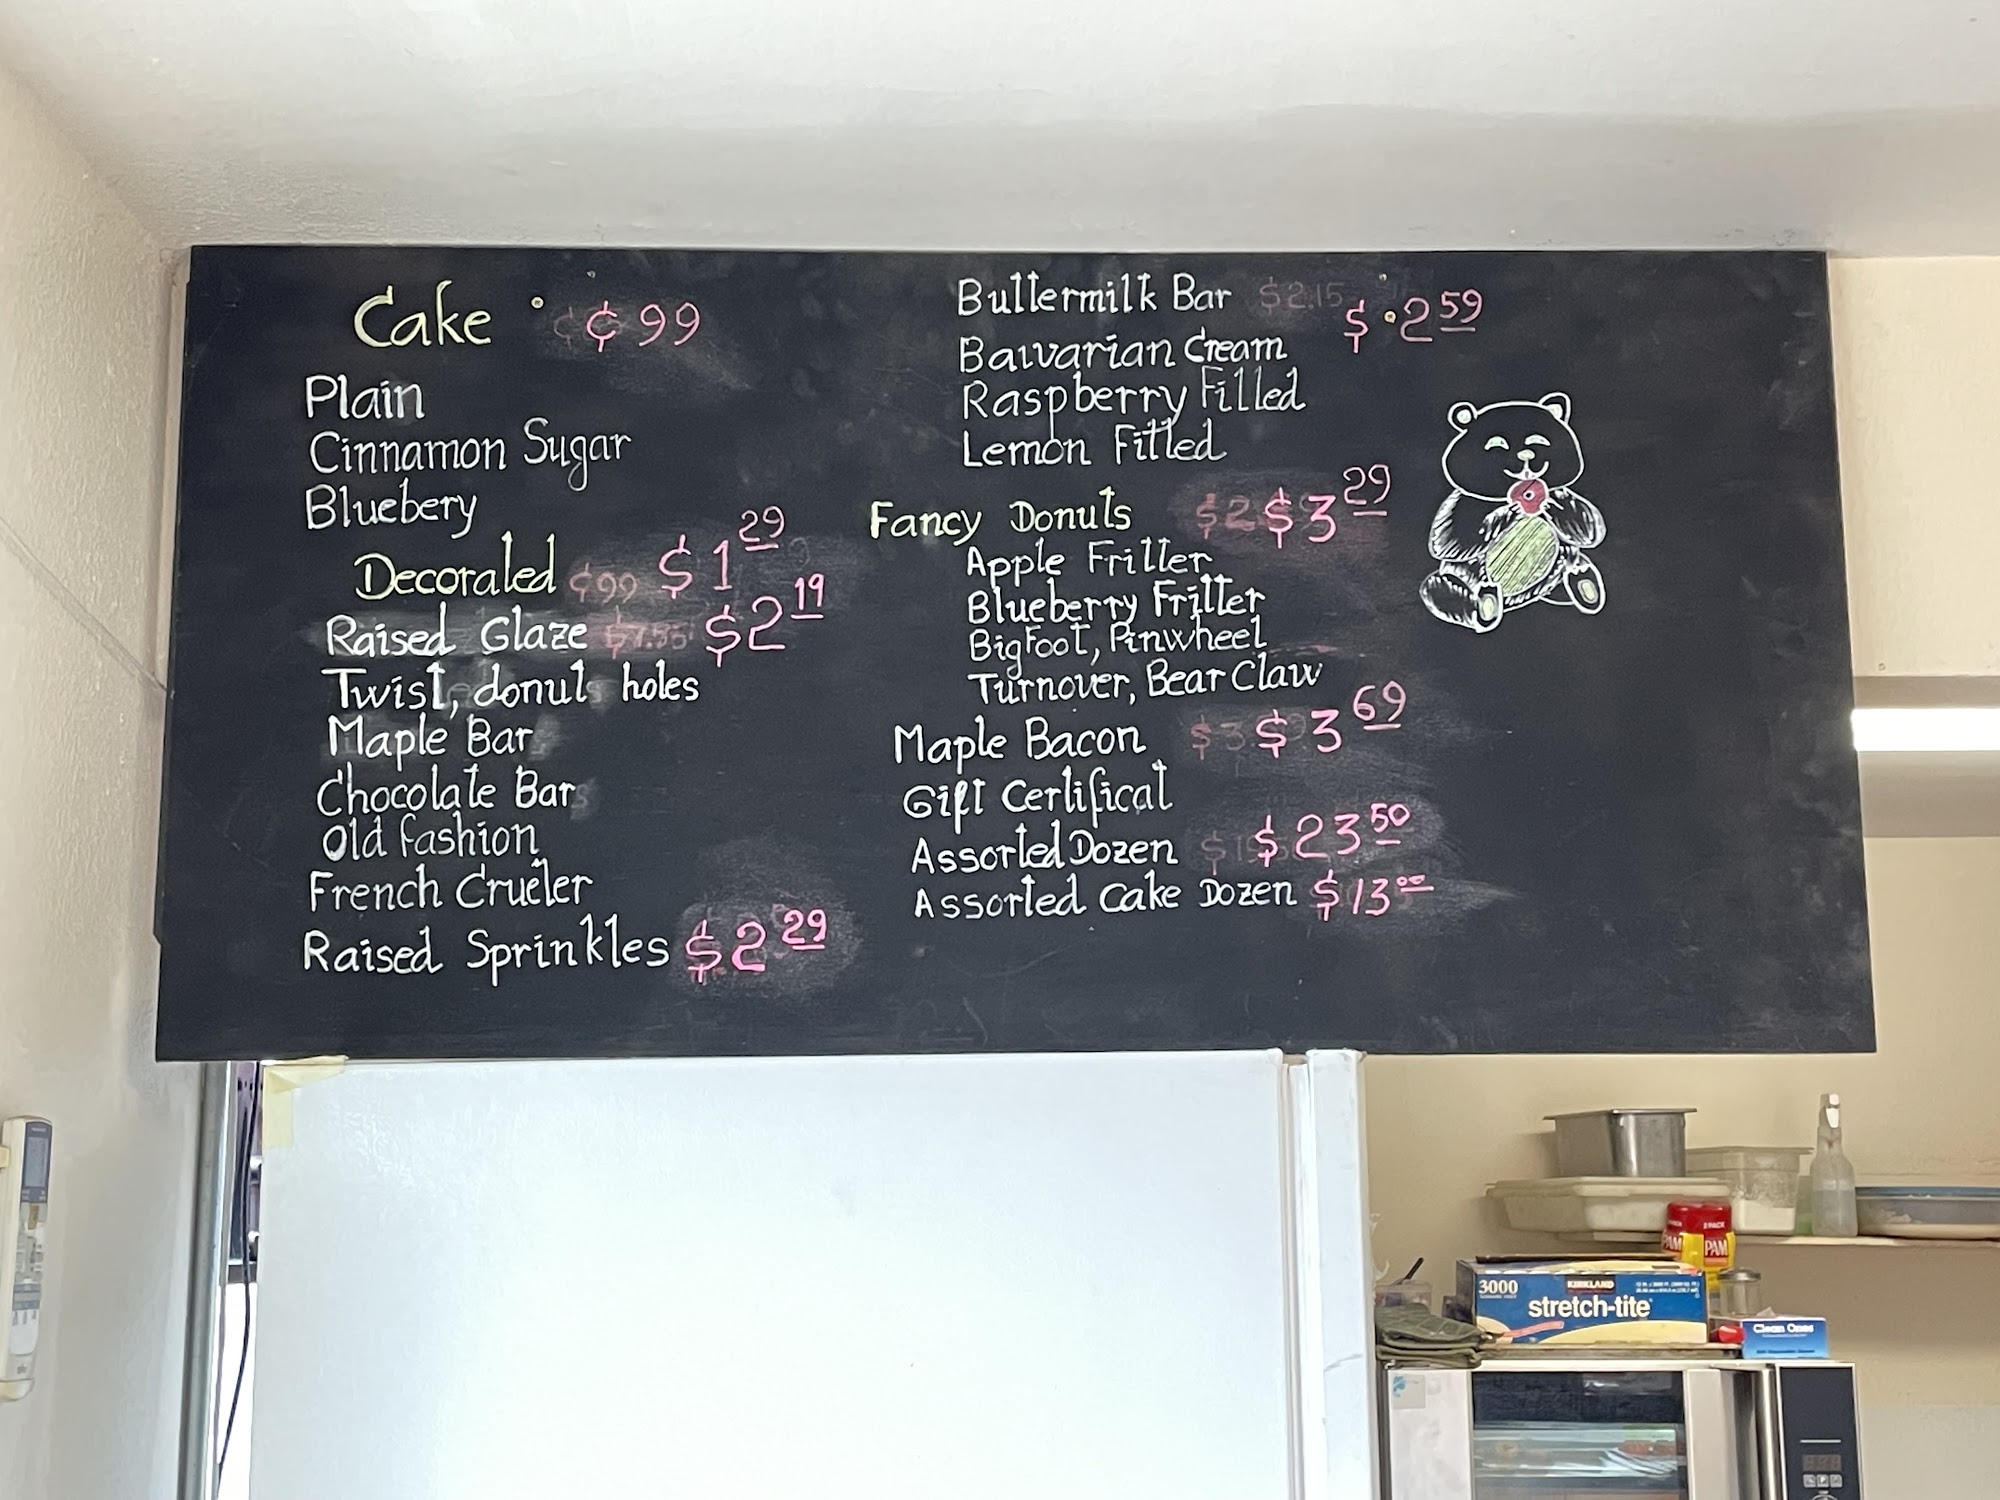 Cake ¢ 99
Plain
Cinnamon Sugar
Bluebery
Decorated ¢99 $1 29
Raised Glaze $2 19
Twist, donut holes
Maple Bar
Chocolate Bar
Old fashion
French Crueler
Raised Sprinkles $2 29
Buttermilk Bar $2.15 $ 2 59
Baivarian Cream
Raspberry Filled
Lemon Filled
Fancy Donuts $2 $3 29
Apple Fritter
Blueberry Fritter
Bigfoot, Pinwheel
Turnover, Bear Claw
Maple Bacon $3 $3 69
Gift Certifical
Assorted Dozen $23 50
Assorted Cake Dozen $13 00
2 PACK
PAM
PAM
3000
KIRKLAND
stretch-tite
Clean Ones